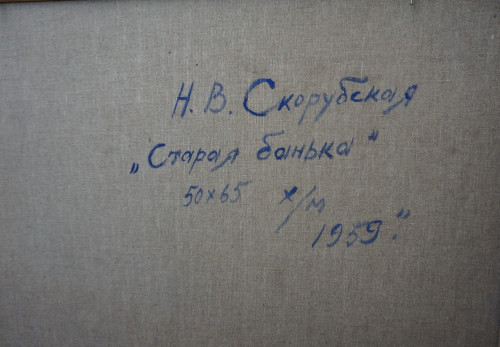 Н. В. Скорубская
„Старая банька"
50x65 х/м
1959."